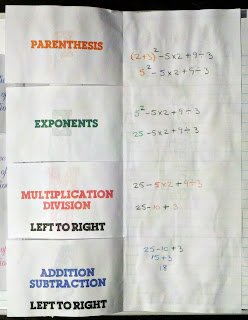 PARENTHESIS
(2+3)² - 5×2 + 9÷3
5² - 5×2 + 9÷3
EXPONENTS
5² - 5×2 + 9÷3
25 - 5×2 + 9÷3
MULTIPLICATION
DIVISION
LEFT TO RIGHT
25 - 5×2 + 9÷3
25 - 10 + 3
ADDITION
SUBTRACTION
LEFT TO RIGHT
25 - 10 + 3
15 + 3
18